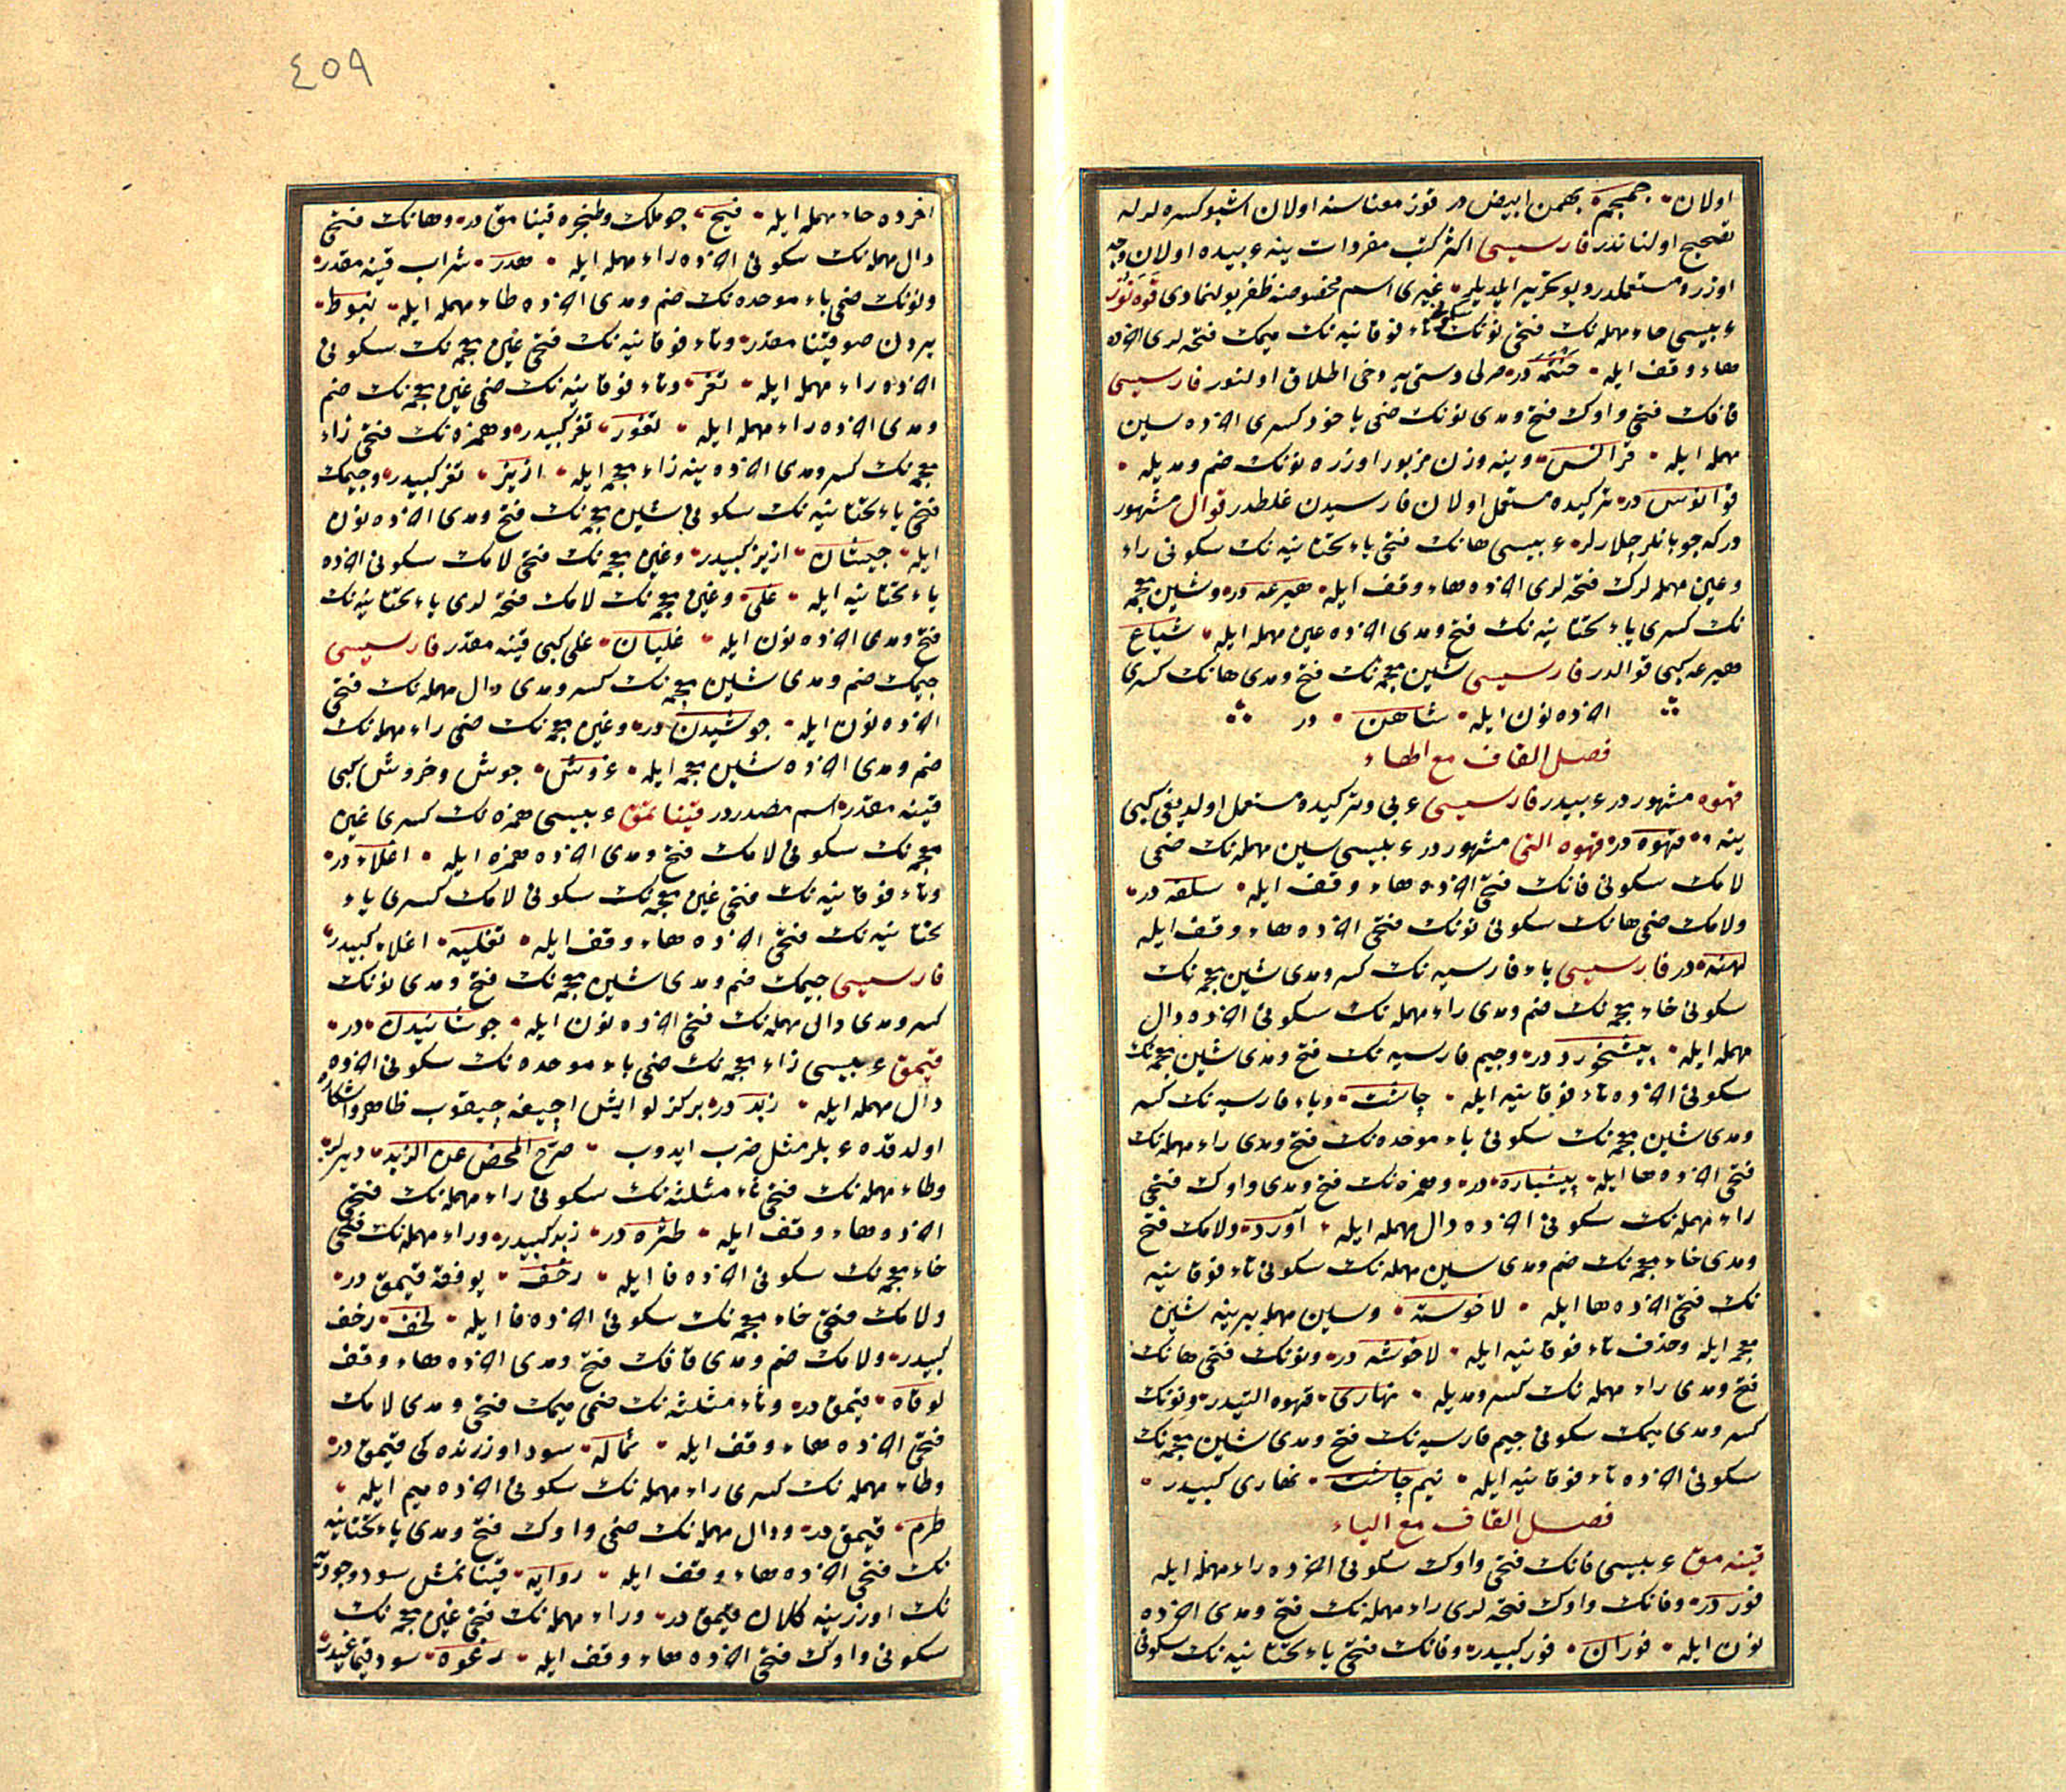 اولان جمجم بهمن ابیض در قوز معناسنه اولان اشبو کسره لر له
تصحیح اولنانذر فارسیسی اکثر کتب مفردات ینه عربیده اولان وجه
اوزره مستعملدر ویوکرتیر ایلدیلر غیری اسم مخصوصنه ظفر بولنمادی
عربیسی حاء مهمله نک فتحی نونک سکونی تاء فوقانیه نک میمک فتحه لری اخرده
هاء وقف ایله حنتمه در صرلی دستی یه دخی اطلاق اولنور فارسیسی
قافک فتحی واوک فتح ومدی نونک ضمی یاخود کسری اخرده سین
مهمله ایله قوانس وینه وزن مزبور اوزره نونک ضم ومدیله
قوانوس در ترکیده مستعمل اولان فارسیدن غلطدر قوال مشهور
درکه چوبانلر چلارلر عربیسی هانک فتحی یاء تحتانیه نک سکونی راء
وعین مهمله لرک فتحه لری اخرده هاء وقف ایله هیرعه در وشین معجمه
نک کسری یاء تحتانیه نک فتح ومدی اخرده عین مهمله ایله شیاع
هیرعه کبی قوالدر فارسیسی شین معجمه نک فتح ومدی هانک کسری
اخرده نون ایله شاهن در
فصل القاف مع الهاء
قهوه مشهور در عربیدر فارسیسی عربی وترکیده مستعمل اولدیغی کبی
ینه قهوه در قهوه التی مشهور در عربیسی سین مهمله نک ضمی
لامک سکونی فانک فتحی اخرده هاء وقف ایله سلفه در
ولامک ضمی هانک سکونی نونک فتحی اخرده هاء وقف ایله
لهنه در فارسیسی باء فارسیه نک کسر ومدی شین معجمه نک
سکونی خاء معجمه نک ضم ومدی راء مهمله نک سکونی اخرده دال
مهمله ایله پیشخورد در وجیم فارسیه نک فتح ومدی شین معجمه نک
سکونی اخرده تاء فوقانیه ایله چاشت وباء فارسیه نک کسر
ومدی شین معجمه نک سکونی باء موحده نک فتح ومدی راء مهمله نک
فتحی اخرده ها ایله پیشباره در وهمزه نک فتح ومدی واوک فتحی
راء مهمله نک سکونی اخرده دال مهمله ایله آورد ولامک فتح
ومدی خاء معجمه نک ضم ومدی سین مهمله نک سکونی تاء فوقانیه
نک فتحی اخرده ها ایله لاخوسته وسین مهمله یرینه شین
معجمه ایله وحذف تاء فوقانیه ایله لاخوشه در ونونک فتحی هانک
فتح ومدی راء مهمله نک کسر ومدیله نهاری قهوه التیدر ونونک
کسر ومدی میمک سکونی جیم فارسیه نک فتح ومدی شین معجمه نک
سکونی اخرده تاء فوقانیه ایله نیم چاشت نهاری کبیدر
فصل القاف مع الیاء
قینه مق عربیسی فانک فتحی واوک سکونی اخرده راء مهمله ایله
فور در وفانک واوک فتحه لری راء مهمله نک فتح ومدی اخرده
نون ایله فوران فور کبیدر وفانک فتحی یاء تحتانیه نک سکونی
٤٥٩
اخرده حاء مهمله ایله فیح جوملک وطنجره قینامق در وهانک فتحی
دال مهمله نک سکونی اخرده راء مهمله ایله هدر شراب قینه مقدر
ونونک ضمی باء موحده نک ضم ومدی اخرده طاء مهمله ایله نبوط
یردن صو قینامقدر وتاء فوقانیه نک فتحی غین معجمه نک سکونی
اخرده راء مهمله ایله تغر وتاء فوقانیه نک ضمی غین معجمه نک ضم
ومدی اخرده راء مهمله ایله تغور تغر کبیدر وهمزه نک فتحی زاء
معجمه نک کسر ومدی اخرده ینه زاء معجمه ایله ازیز تغر کبیدر وجیمک
فتحی یاء تحتانیه نک سکونی شین معجمه نک فتح ومدی اخرده نون
ایله جیشان ازیز کبیدر وغین معجمه نک فتحی لامک سکونی اخرده
یاء تحتانیه ایله غلی وغین معجمه نک لامک فتحه لری یاء تحتانیه نک
فتح ومدی اخرده نون ایله غلیان غلی کبی قینه مقدر فارسیسی
جیمک ضم ومدی شین معجمه نک کسر ومدی دال مهمله نک فتحی
اخرده نون ایله جوشیدن در وغین معجمه نک ضمی راء مهمله نک
ضم ومدی اخرده شین معجمه ایله غروش جوش وخروش کبی
قینه مقدر اسم مصدر در قیناتمق عربیسی همزه نک کسری غین
معجمه نک سکونی لامک فتح ومدی اخرده همزه ایله اغلاء در
وتاء فوقانیه نک فتحی غین معجمه نک سکونی لامک کسری یاء
تحتانیه نک فتحی اخرده هاء وقف ایله تغلیه اغلاء کبیدر
فارسیسی جیمک ضم ومدی شین معجمه نک فتح ومدی نونک
کسر ومدی دال مهمله نک فتحی اخرده نون ایله جوشانیدن در
قیمق عربیسی زاء معجمه نک ضمی باء موحده نک سکونی اخرده
دال مهمله ایله زبد در برکزلو ایش اچیغه چیقوب ظاهر واشکاره
اولدقده عربلر مثل ضرب ایدوب صرح المحض عن الزبد دیرلر
وطاء مهمله نک فتحی ثاء مثلثه نک سکونی راء مهمله نک فتحی
اخرده هاء وقف ایله طثره در زبد کبیدر وراء مهمله نک فتحی
خاء معجمه نک سکونی اخرده فا ایله رخف یوفقه قیمق در
ولامک فتحی خاء معجمه نک سکونی اخرده فا ایله لخف رخف
کبیدر ولامک ضم ومدی قافک فتح ومدی اخرده هاء وقف
لوقاه قیمق در وثاء مثلثه نک ضمی میمک فتحی ومدی لامک
فتحی اخرده هاء وقف ایله ثماله سود اوزرنده کی قیمق در
وطاء مهمله نک کسری راء مهمله نک سکونی اخرده میم ایله
طرم قیمق در ودال مهمله نک ضمی واوک فتح ومدی یاء تحتانیه
نک فتحی اخرده هاء وقف ایله دوایه قینانمش سود
نک اوزرینه کلان قیمق در وراء مهمله نک فتحی غین معجمه نک
سکونی واوک فتحی اخرده هاء وقف ایله رغوه سود قیماغیدر